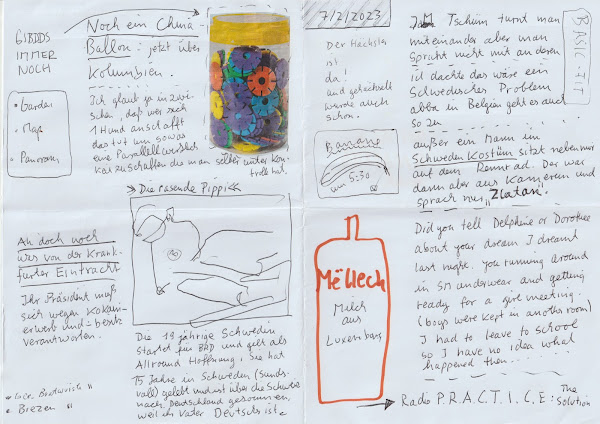 GIBIDS
IMMER
NOCH
• Garden
• Map
• Panorama
Noch ein China-
Ballon: jetzt über
Kolumbien.
Ich glaub ja inzwi-
schen, daß wer sich
1 Hund anschafft
das tut um sowas
eine Parallelwirklich-
keit zu schaffen die man selber unter Kon-
trolle hat.
» Die rasende Pippi «
Ah doch noch
was von der Krank-
furter Eintracht
Ihr Präsident muß
sich wegen Kokain-
erwerb und -besitz
verantworten.
Die 19 jährige Schwedin
startet für BRD und gilt als
Allround Hoffnung. Sie hat
15 Jahre in Schweden (Sunds-
vall) gelebt und ist über die Schweiz
nach Deutschland gekommen,
weil ihr Vater Deutsch ist.
" Brezen "
7/2/2023
Der Nächste
ist
da!
und gewechselt
wurde auch
schon.
Banane
um 5:30
BASIC FIT
Im Tschim turnt man
miteinander aber man
spricht nicht mit anderen
ich dachte das wäre ein
Schwedisches Problem
aber in Belgien geht es auch
so zu
außer ein Mann im
Schweden Kostüm sitzt neben mir
auf dem Rennrad. Der war
dann aber aus Kamerun und
sprach nur „Zlatan".
Mëllech
Milch
aus
Luxemburg
Did you tell Delphine or Dorothee
about your dream I dreamt
last night. you running around
in SM underwear and getting
ready for a girl meeting.
(boys were kept in another room)
I had to leave to school
so I have no idea what
happened then...
Radio P.R.A.C.T.I.C.E: The
Solution